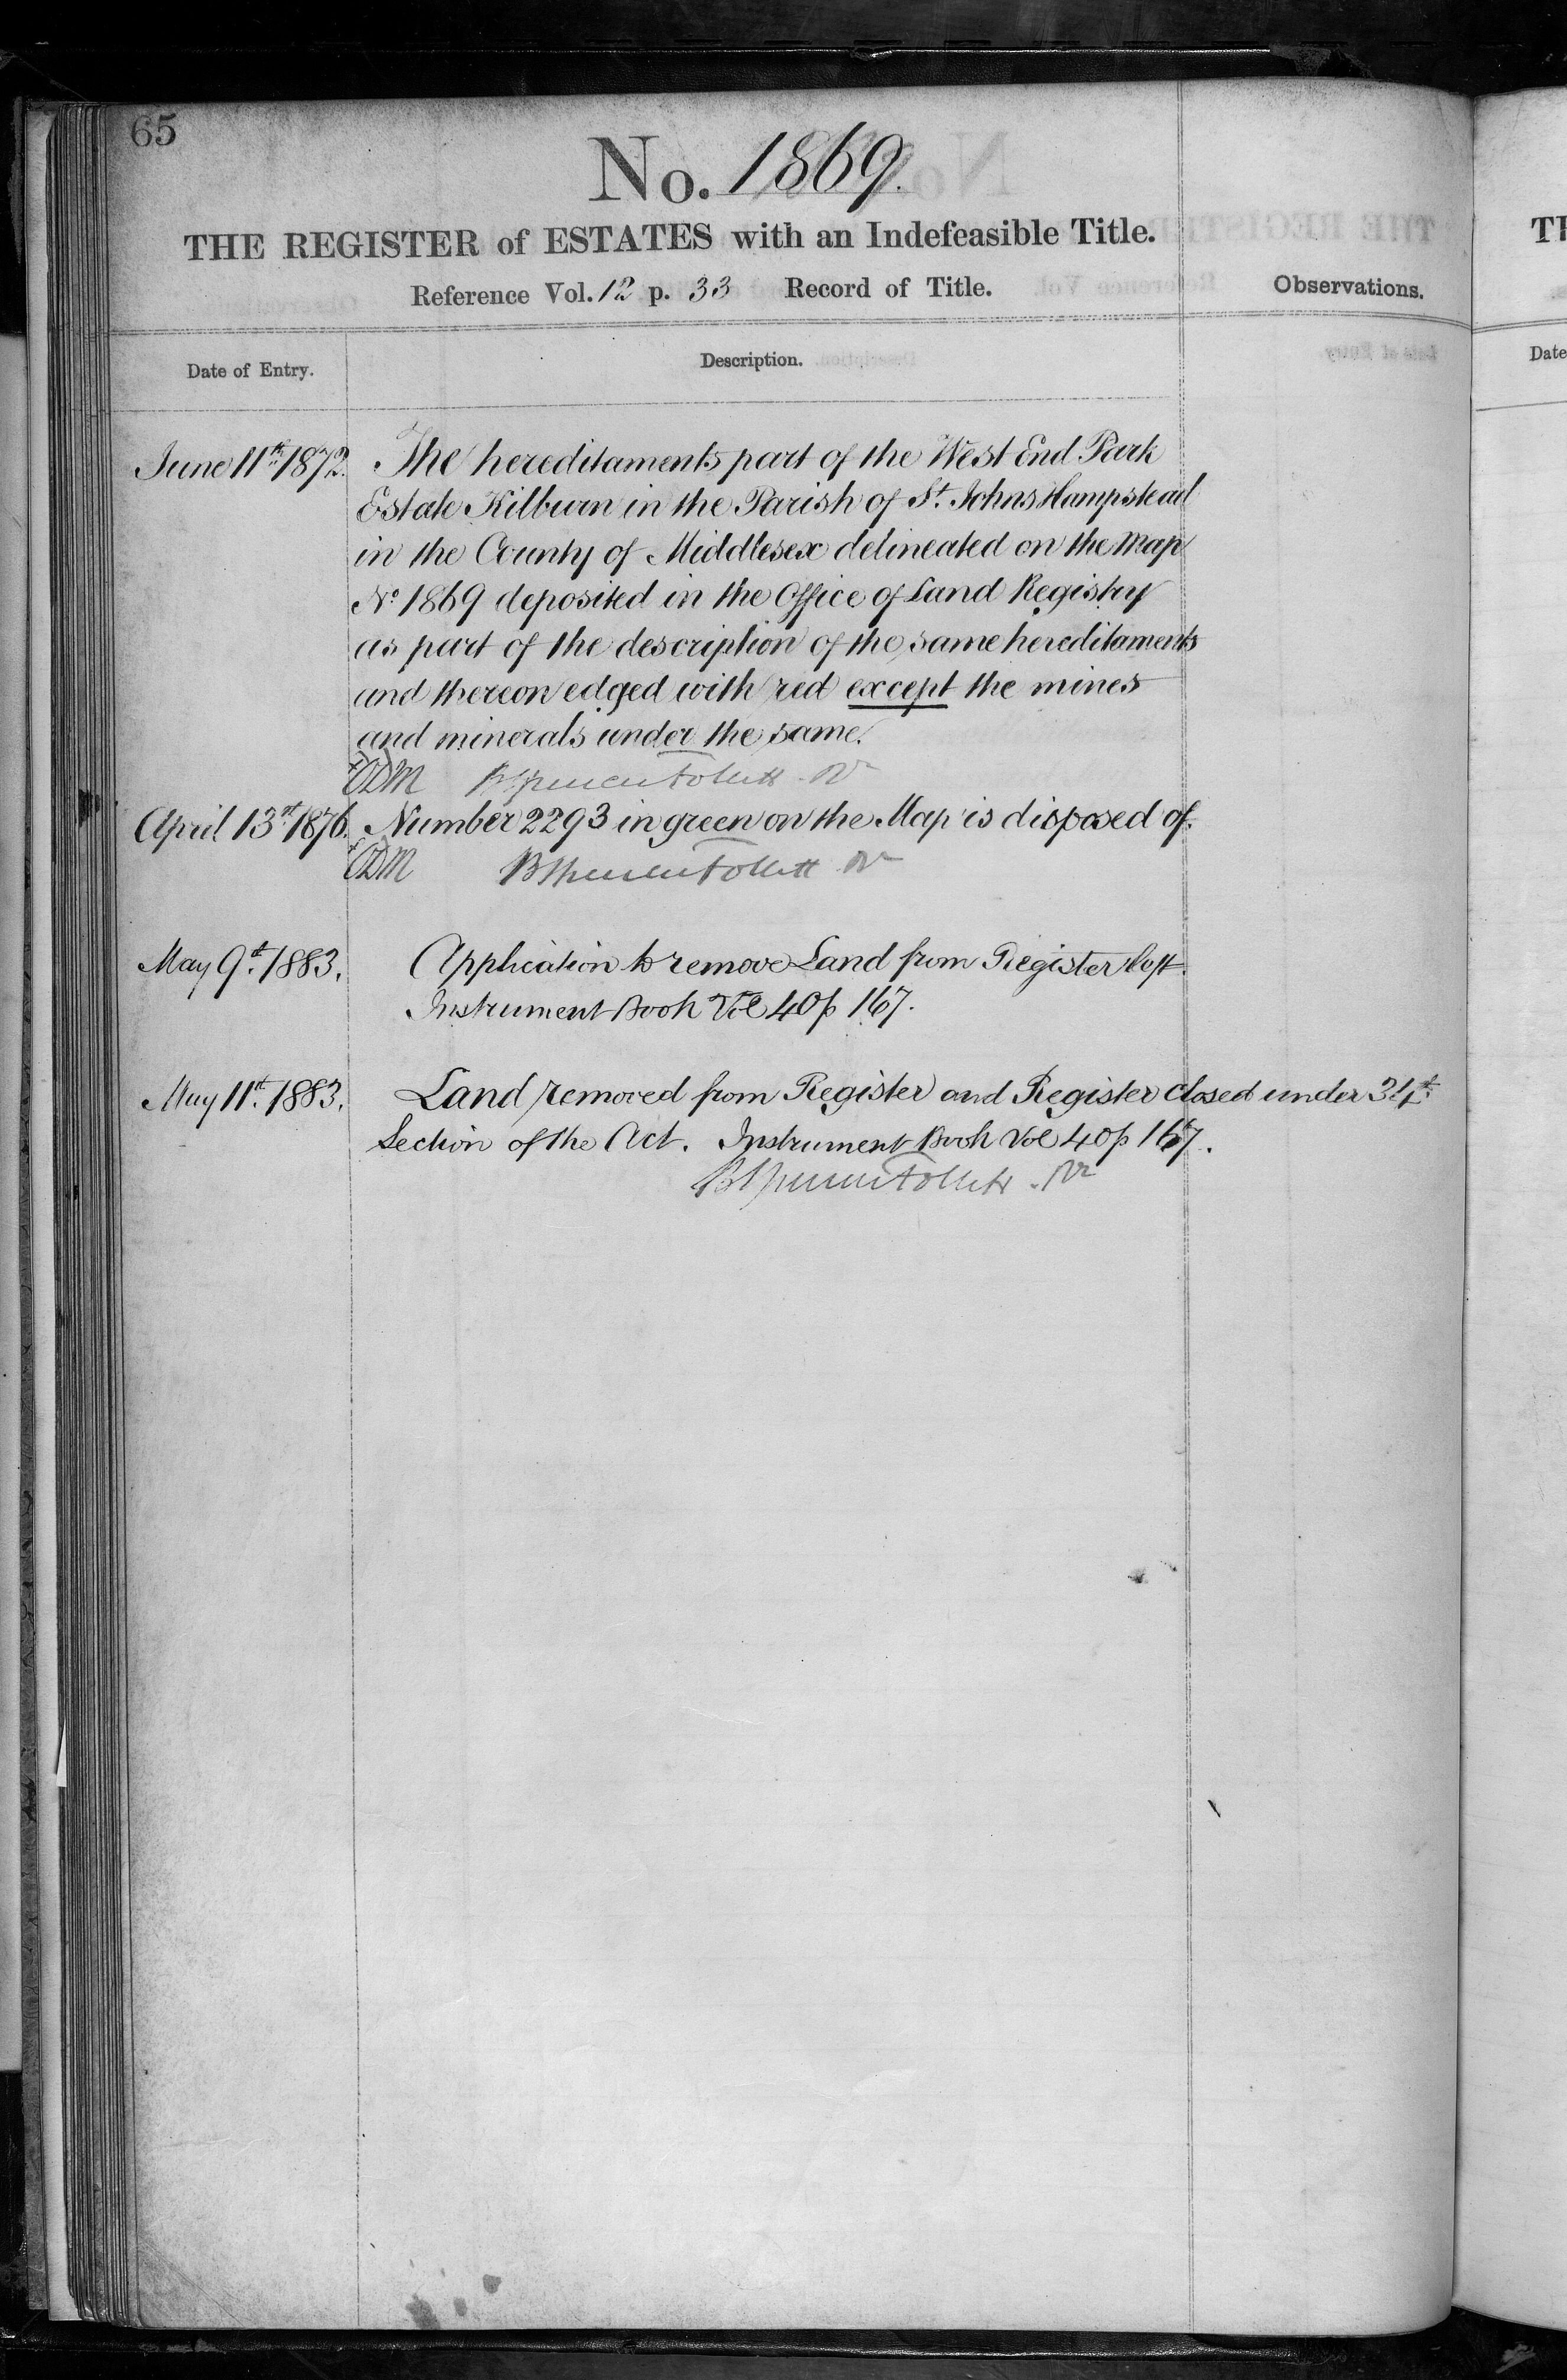 65
No. 1869.
THE REGISTER of ESTATES with an Indefeasible Title.
Reference Vol. 12 p. 33 Record of Title.
Observations.
Date of Entry.
Description.
June 11th 1872. The hereditaments part of the West End Park
Estate Kilburn in the Parish of St. Johns Hampstead
in the County of Middlesex delineated on the Map
No 1869 deposited in the Office of Land Registry
as part of the description of the same hereditaments
and thereon edged with red except the mines
and minerals under the same.
Spencer Follett
April 13th 1876. Number 2293 in green on the Map is disposed of.
B Spencer Follett
May 9th 1883. Application to remove Land from Register left.
Instrument Book Vol 40 p 167.
May 11th 1883. Land removed from Register and Register closed under 34th
Section of the Act. Instrument Book Vol 40 p 167.
B Spencer Follett
TH
Date